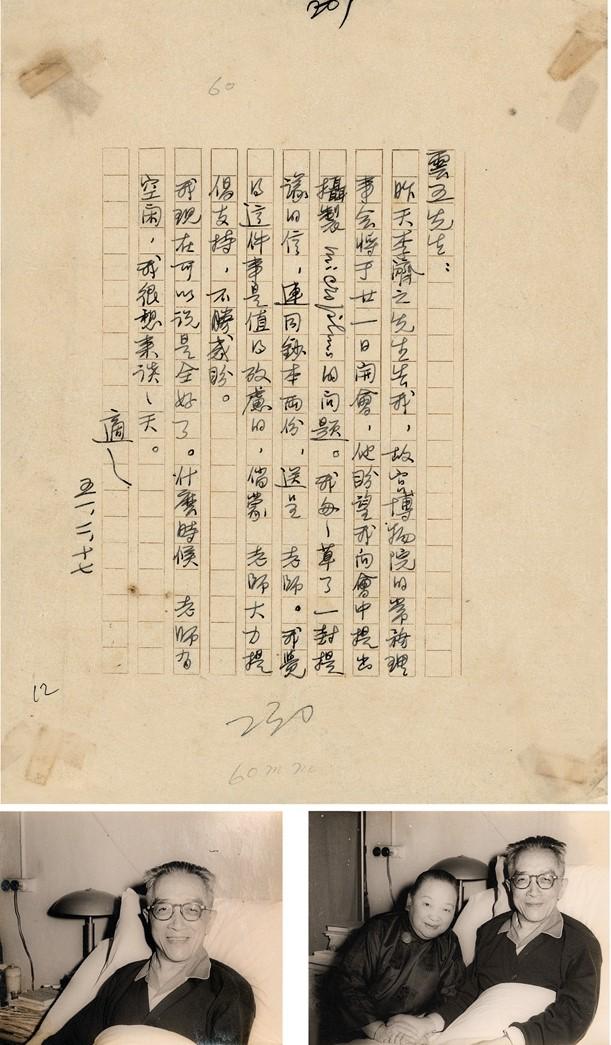 雲五先生：
昨天李濟之先生告我，故宮博物院的常務理
事会將于廿一日開會，他盼望我向會中提出
攝製 microfilms 的问题。我匆匆草了一封提
議的信，連同鈔本兩份，送呈 老師。我覺
得這件事是值得攷慮的，倘蒙 老師大力提
倡支持，不勝感盼。
我現在可以說是全好了。什麼時候 老師有
空閑，我很想来談談天。
適
五一、二、十七
60
12
230